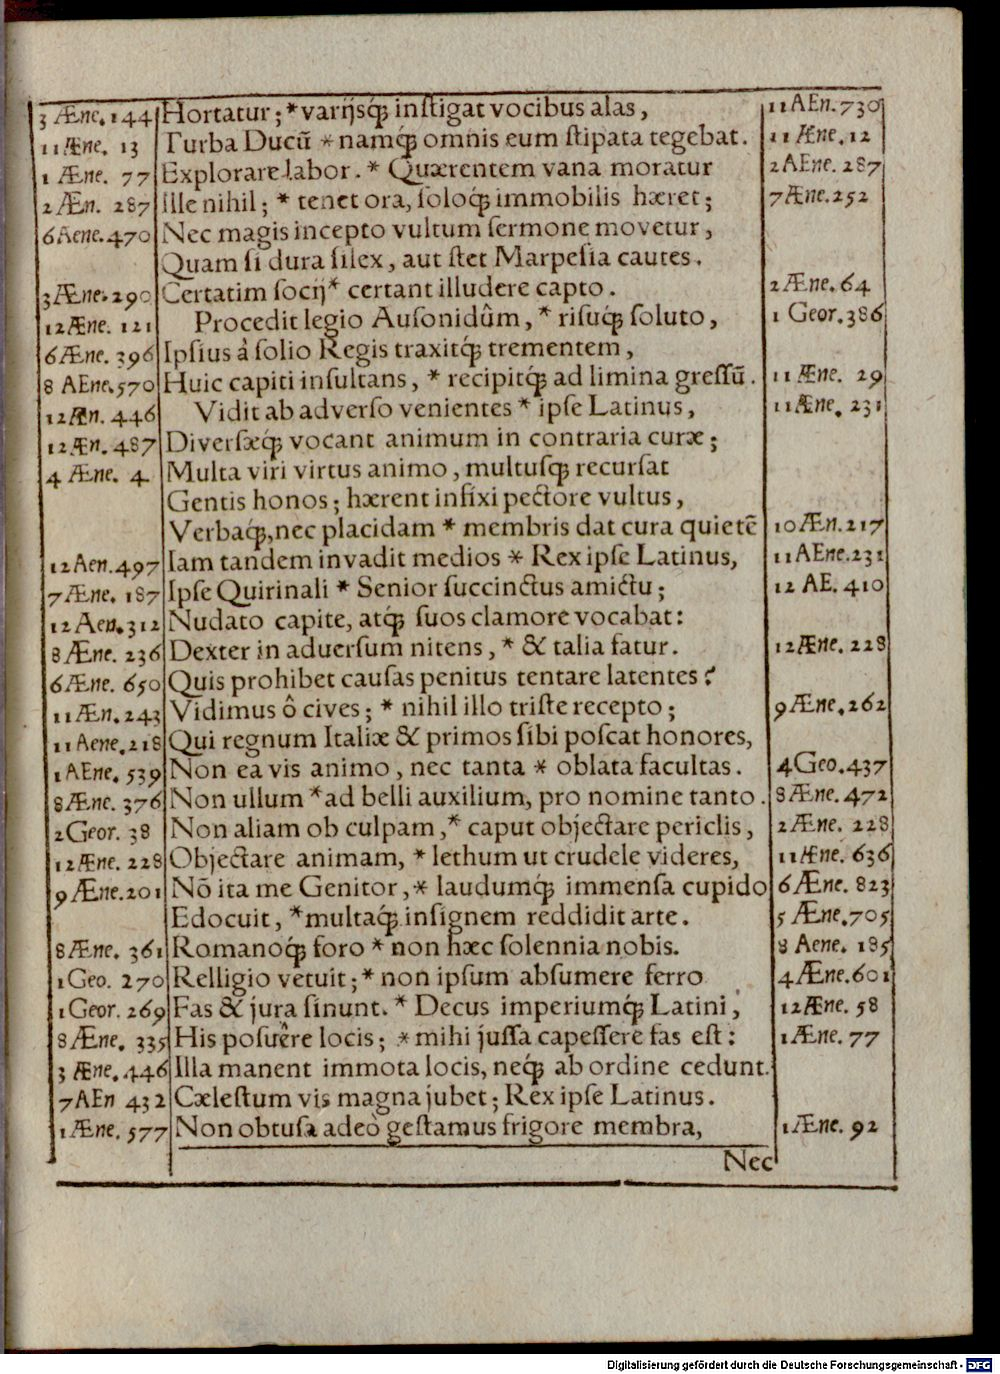 3 Æne. 144 Hortatur; * varijsq́; instigat vocibus alas, 11 AEn. 730
11 Æne. 13 Turba Ducũ * namq́; omnis eum stipata tegebat. 11 Æne. 12
1 Æne. 77 Explorare labor. * Quærentem vana moratur 2 AEne. 287
2 Æn. 287 Ille nihil; * tenet ora, soloq́; immobilis hæret; 7 Æne. 252
6 Aene. 470 Nec magis incepto vultum sermone movetur,
Quam si dura silex, aut stet Marpesia cautes.
3 Æne. 290 Certatim socij * certant illudere capto. 2 Æne. 64
12 Æne. 121 Procedit legio Ausonidûm, * risuq́; soluto, 1 Geor. 386
6 Æne. 396 Ipsius â solio Regis traxitq́; trementem,
8 AEne. 570 Huic capiti insultans, * recipitq́; ad limina gressũ. 11 Æne. 29
12 Æn. 446 Vidit ab adverso venientes * ipse Latinus, 11 Æne. 231
12 Æn. 487 Diversæq́; vocant animum in contraria curæ;
4 Æne. 4 Multa viri virtus animo, multusq́; recursat
Gentis honos; hærent infixi pectore vultus,
Verbaq́;, nec placidam * membris dat cura quietẽ 10 Æn. 217
12 Aen. 497 Iam tandem invadit medios * Rex ipse Latinus, 11 AEne. 231
7 Æne. 187 Ipse Quirinali * Senior succinctus amictu; 12 AE. 410
12 Aen. 312 Nudato capite, atq́; suos clamore vocabat:
8 Æne. 236 Dexter in aduersum nitens, * & talia fatur. 12 Æne. 228
6 Æne. 650 Quis prohibet causas penitus tentare latentes?
11 Æn. 243 Vidimus ô cives; * nihil illo triste recepto; 9 Æne. 262
11 Aene. 218 Qui regnum Italiæ & primos sibi poscat honores,
1 AEne. 539 Non ea vis animo, nec tanta * oblata facultas. 4 Geo. 437
8 Æne. 376 Non ullum * ad belli auxilium, pro nomine tanto. 8 Æne. 472
2 Geor. 38 Non aliam ob culpam, * caput objectare periclis, 2 Æne. 228
12 Æne. 228 Objectare animam, * lethum ut crudele videres, 11 Æne. 636
9 Æne. 201 Nõ ita me Genitor, * laudumq́; immensa cupido 6 Æne. 823
Edocuit, * multaq́; insignem reddidit arte. 5 Æne. 705
8 Æne. 361 Romanoq́; foro * non hæc solennia nobis. 8 Aene. 185
1 Geo. 270 Relligio vetuit; * non ipsum absumere ferro 4 Æne. 601
1 Geor. 269 Fas & jura sinunt. * Decus imperiumq́; Latini, 12 Æne. 58
8 Æne. 335 His posuêre locis; * mihi jussa capessere fas est: 1 Æne. 77
3 Æne. 446 Illa manent immota locis, neq́; ab ordine cedunt.
7 AEn 432 Cælestum vis magna jubet; Rex ipse Latinus.
1 Æne. 577 Non obtusa adeò gestamus frigore membra, 1 Æne. 92
Nec
Digitalisierung gefördert durch die Deutsche Forschungsgemeinschaft - DFG